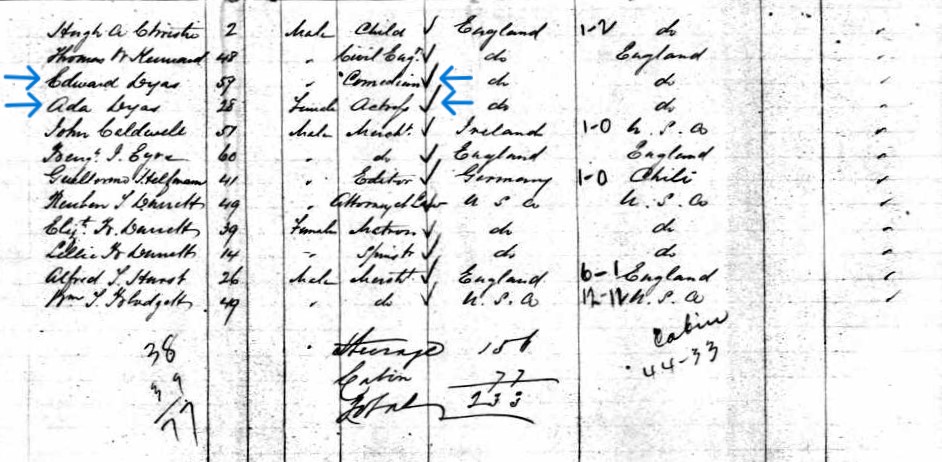 Hugh A Christie 2 Male Child England 1-2 do
Thomas W Kennard 48 " Civil Engr do England
Edward Dyas 57 " Comedian do do
Ada Dyas 28 Female Actress do do
John Caldwell 57 Male Mercht Ireland 1-0 U. S. A
Benj. I. Eyre 60 " do England England
Guillermo Helfmann 41 " Editor Germany 1-0 Chili
Reuben T Durrett 49 " Attorney at Law U. S. A U. S. A
Elizt. H. Durrett 39 Female Matron do do
Lillie H Durrett 14 " Spinstr do do
Alfred T. Hurst 26 Male Mercht England 6-1 England
Wm T. Blodgett 49 " do U. S. A 12-12 U. S. A
38 Steerage 156 Cabin
39 Cabin 77 44-33
77 Total 233